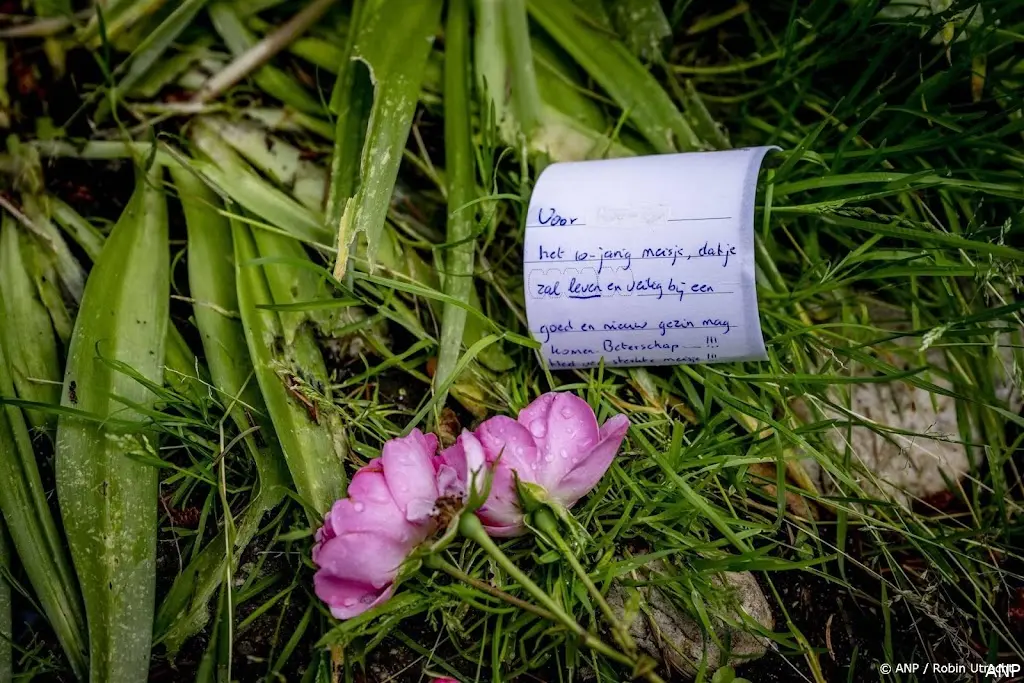 Voor
het 10-jarig meisje, dat je
zal leven en veilig bij een
goed en nieuw gezin mag
komen. Beterschap !!!
sterkte meisje !!!
© ANP / Robin Utrecht
ANP